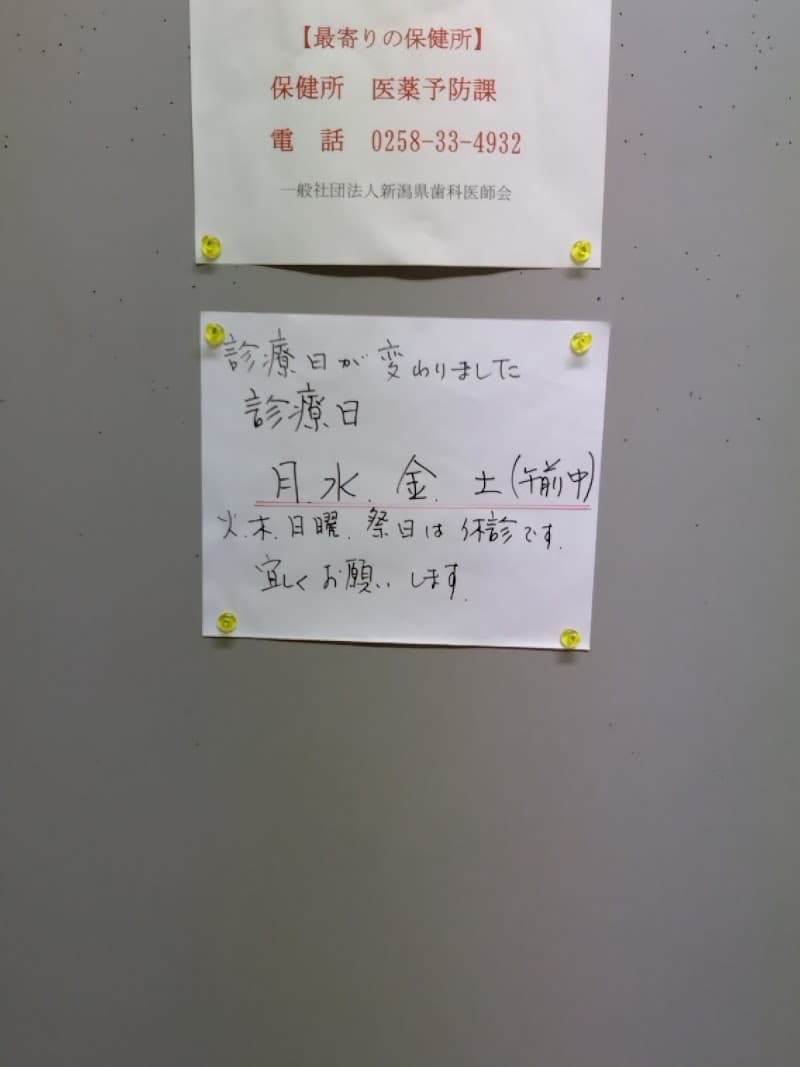 【最寄りの保健所】
保健所　医薬予防課
電　話　0258-33-4932
一般社団法人新潟県歯科医師会
診療日が変わりました
診療日
月.水.金.土(午前中)
火.木.日曜.祭日は休診です.
宜しくお願いします.